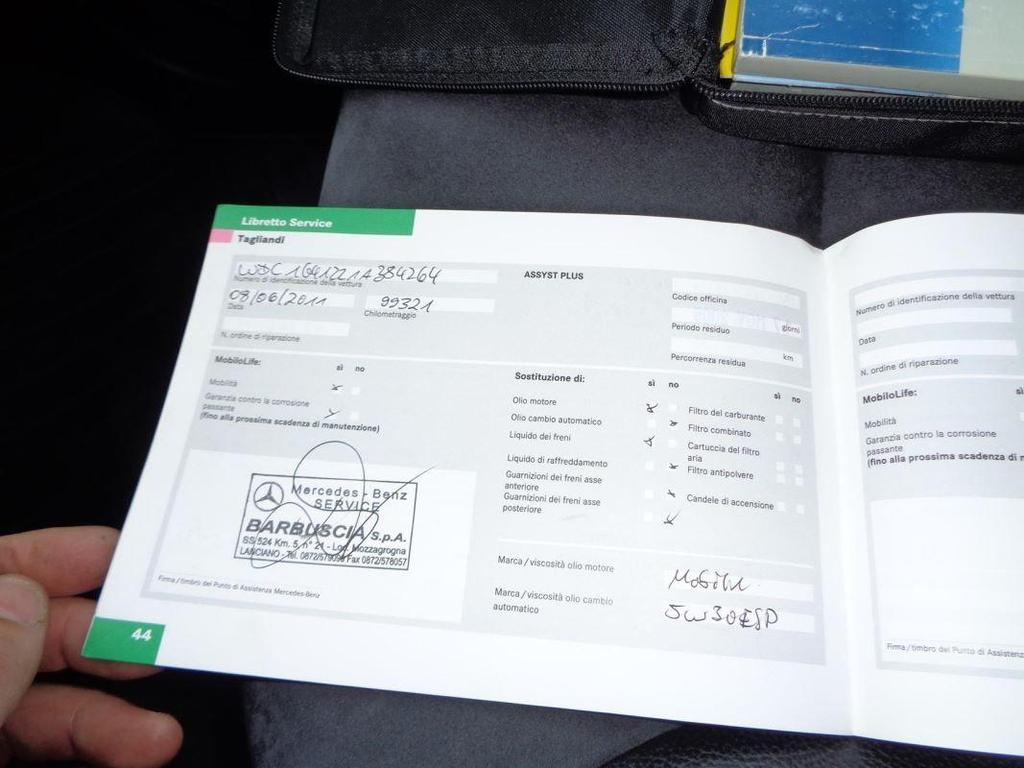 Libretto Service
Tagliandi
WDC1641221A384264
Numero di identificazione della vettura
08/06/2011 99321
Data Chilometraggio
N. ordine di riparazione
ASSYST PLUS
Codice officina
giorni
Periodo residuo
km
Percorrenza residua
MobiloLife: sì no
Mobilità
Garanzia contro la corrosione
passante
(fino alla prossima scadenza di manutenzione)
Mercedes-Benz
SERVICE
BARBUSCIA S.p.A.
SS 524 Km. 5, n° 21 - Loc. Mozzagrogna
LANCIANO - Tel. Fax 0872/578057
Firma/timbro del Punto di Assistenza Mercedes-Benz
44
Sostituzione di: sì no
Olio motore
Olio cambio automatico
Liquido dei freni
Liquido di raffreddamento
Guarnizioni dei freni asse
anteriore
Guarnizioni dei freni asse
posteriore
sì no
Filtro del carburante
Filtro combinato
Cartuccia del filtro
aria
Filtro antipolvere
Candele di accensione
Marca/viscosità olio motore
Marca/viscosità olio cambio
automatico
5W30 ESP
Numero di identificazione della vettura
Data
N. ordine di riparazione
MobiloLife:
Mobilità
Garanzia contro la corrosione
passante
(fino alla prossima scadenza di
Firma/timbro del Punto di Assistenza